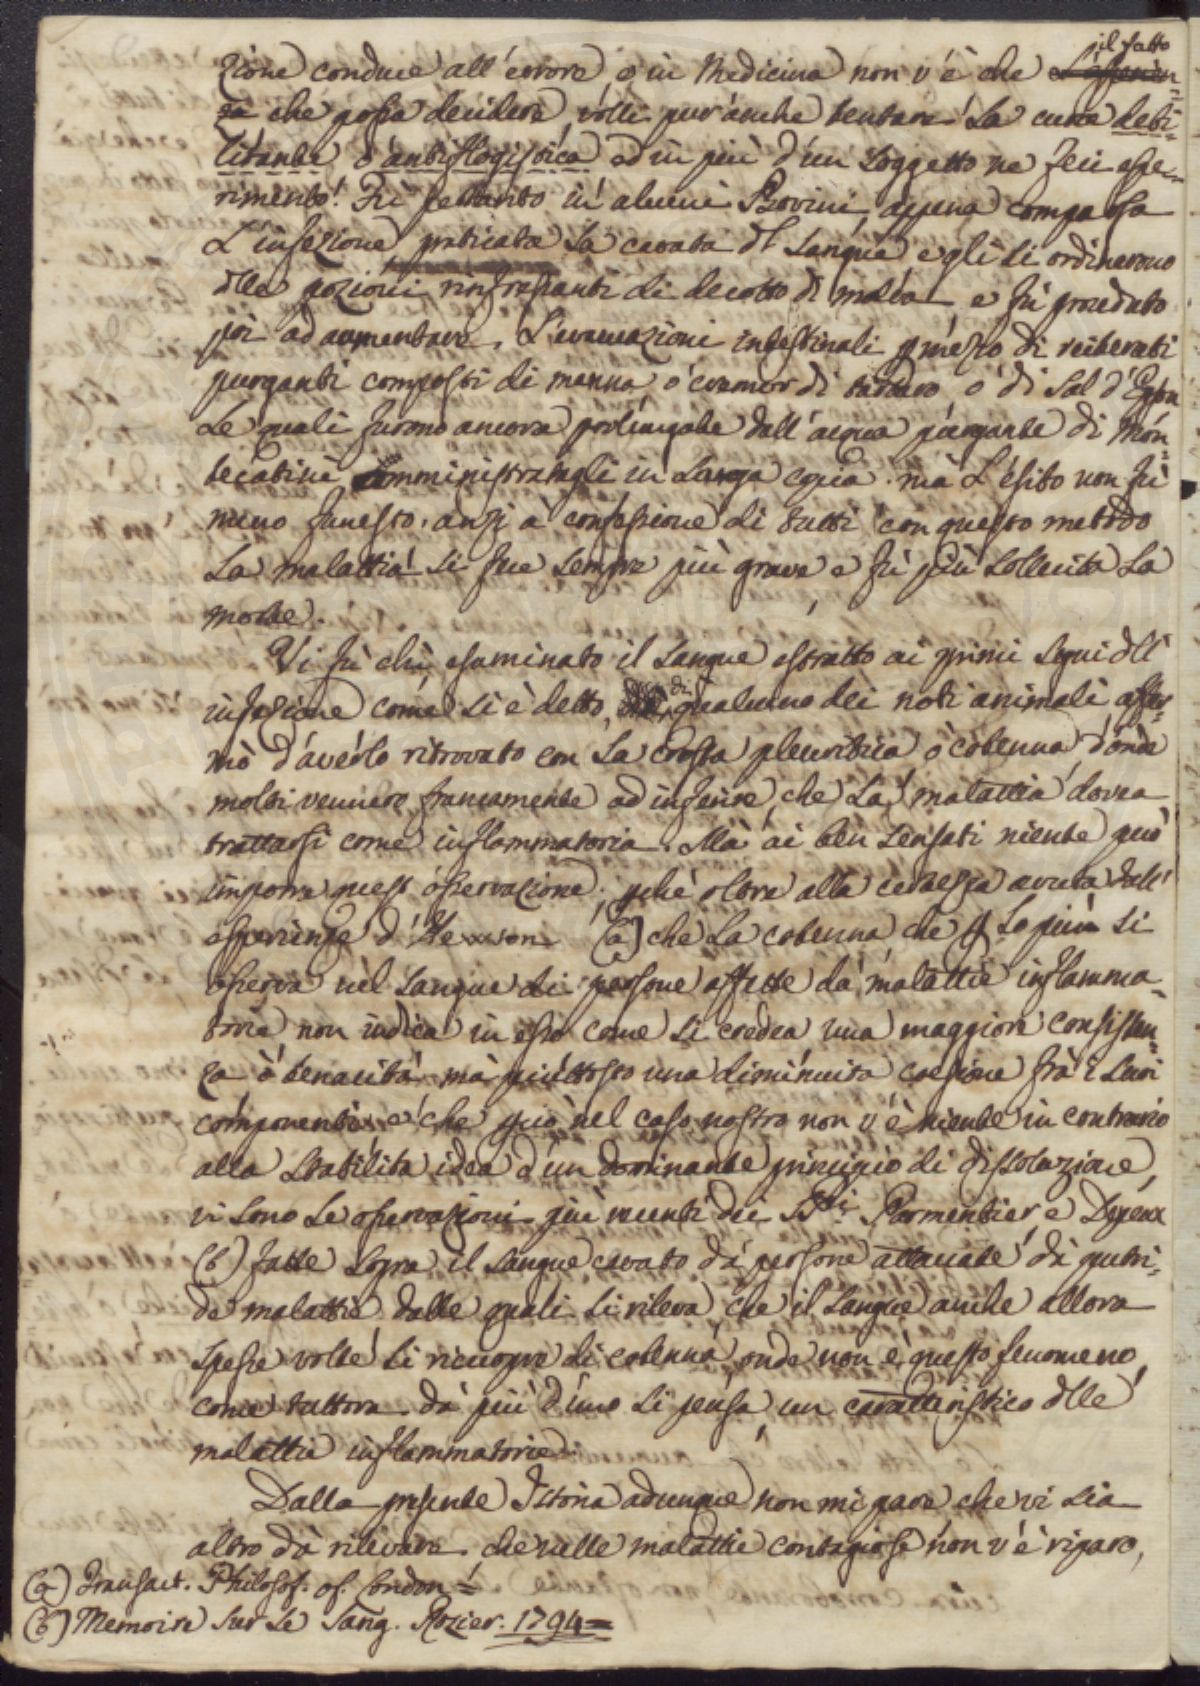 zione conduce all'errore e in Medicina non v'è che il fatto
che possa decidere volli pur'anche tentare La cura debi-
litante o antiflogistica ed in più d'un Soggetto ne feci espe-
rimento. Fù pertanto in alcuni Bovini appena comparsa
L'infezione praticata La cavata di Sangue e gli si ordinarono
delle pozioni rinfrescanti di decotto di malva e fù proceduto
poi ad aumentare L'evacuazioni intestinali p mezzo di reiterati
purganti composti di manna o cremor di tartaro o di Sal d'Epson
Le quali furono ancora prolungate dall'acqua purgante di Mon-
tecatini amministratagli in Larga copia. mà L'esito non fù
meno funesto, anzi à confessione di tutti con questo metodo
La malattia si fece sempre più grave e fù più Sollecita La
morte.
Vi fù chi, esaminato il Sangue estratto ai primi Segni dell'
infezione come si è detto, di qualcuno dei noti animali affer-
mò d'averlo ritrovato con La crosta pleuritica o cotenna, d'onde
molti vennero francamente ad inferire, che La malattia dovea
trattarsi come inflammatoria. Mà ai ben Sensati niente può
imporre quest'osservazione; pchè oltre alla certezza avuta dall'
esperienze d'Hewson (a) che La cotenna che p Lo più si
osserva nel Sangue di persone affette da malattie inflamma-
torie non indica in esso come si credea una maggiore consisten-
za o tenacità mà piuttosto una diminuita coesione frà i Suoi
componenti e che più nel caso nostro non v'è niente in contrario
alla Stabilita idea d'un dominante principio di dissoluzione,
vi sono Le osservazioni più recenti dei SS.ri Parmentier e Deyeux
(b) fatte Sopra il Sangue cavato da persone attaccate da putri-
de malattie dalle quali si rileva, che il Sangue anche allora
Spesse volte si ricuopre di cotenna, onde non è questo fenomeno,
come tuttora da più d'uno si pensa, un caratteristico delle
malattie inflammatorie.
Dalla presente Istoria adunque non mi pare che vi sia
altro da rilevare, che nelle malattie contagiose non v'è riparo,
(a) Transact. Philosof. of. London =
(b) Memoire Sur Le Sang. Rozier. 1794=